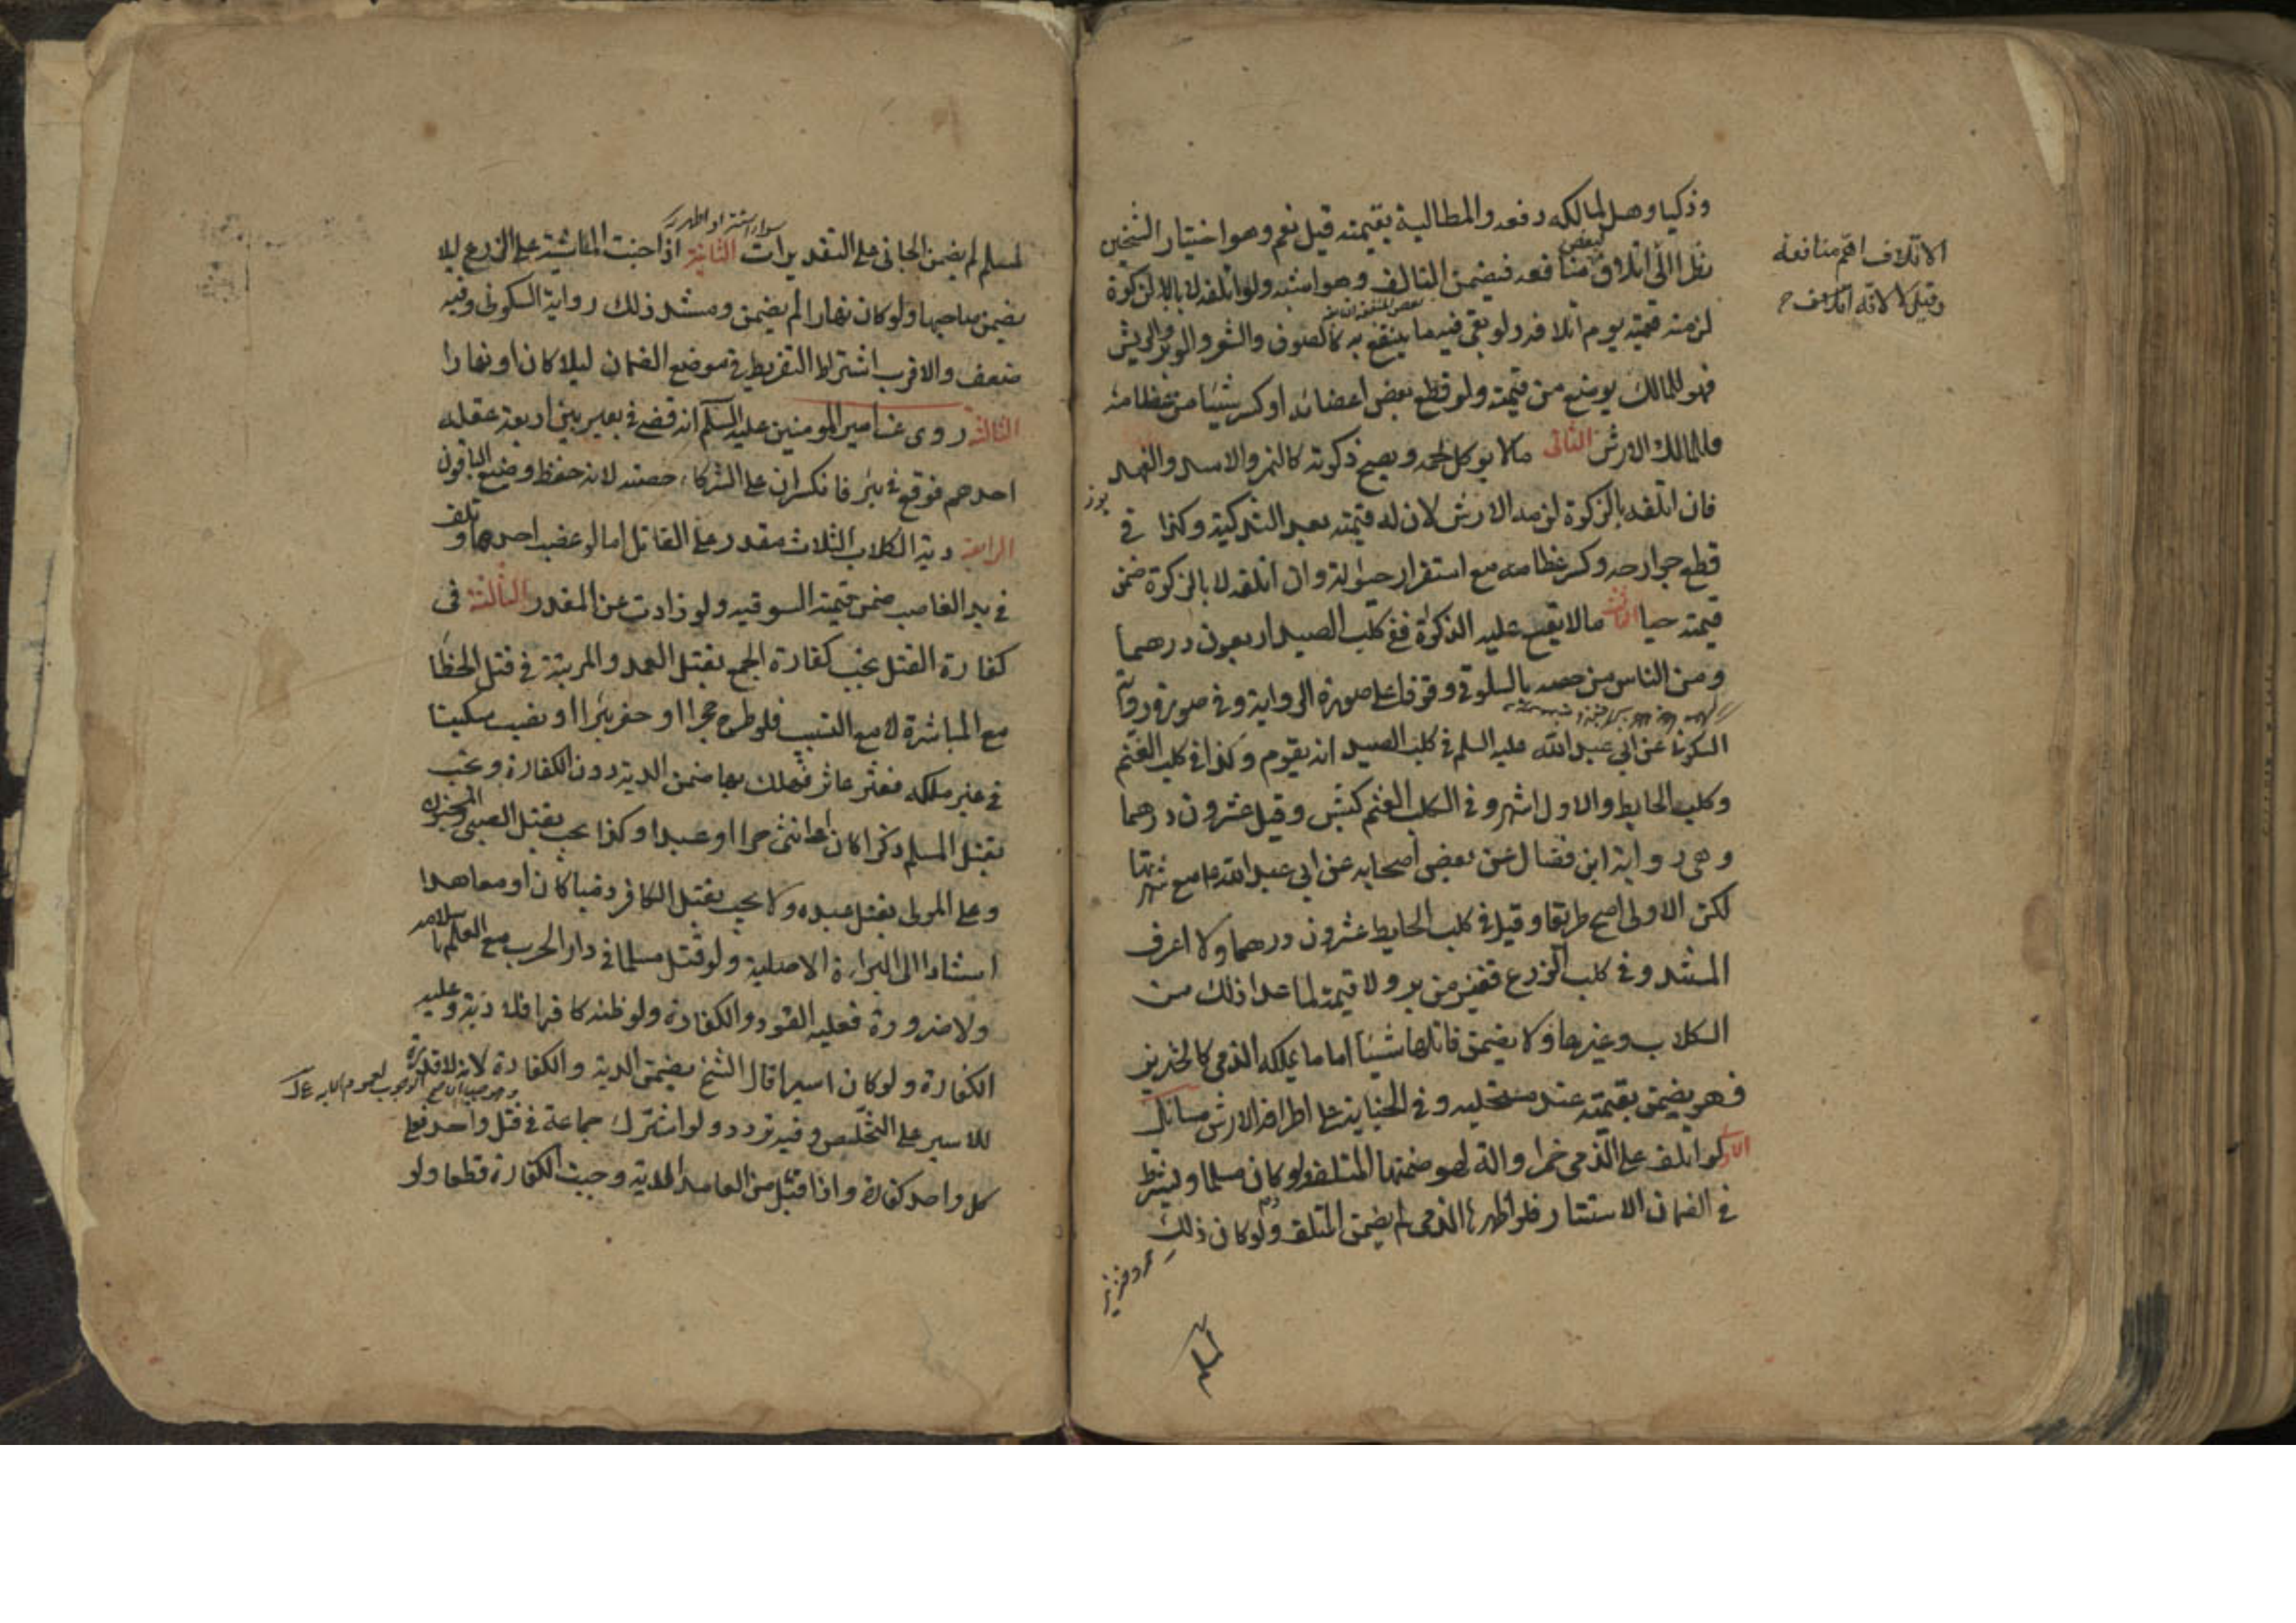 وذكيا وهل لمالكه دفعه والمطالبة بقيمته قيل نعم وهو اختيار الشيخين
نظرا الى اتلاف بعض منافعه فيضمن التالف وهو اشبه ولو اتلفه لا بالذكوة
لزمته قيمته يوم اتلافه ولو بقى فيه ما ينتفع به كالصوف والشعر والوبر والريش
فهو للمالك يوضع من قيمته ولو قطع بعض اعضائه او كسر شيئا من عظامه
فللمالك الارش الثانى ما لا يوكل لحمه ويصح ذكوته كالنمر والاسد والفهد
فان اتلفه بالزكوة لزمه الارش لان له قيمته بعد التذكية وكذا فى
قطع جوارحه وكسر عظامه مع استقرار حيوته وان اتلفه لا بالزكوة ضمن
قيمته حيا الثالث ما لا يقع عليه الذكوة ففى كلب الصيد اربعون درهما
ومن الناس من خصه بالسلوقى وقوفا على صورة الرواية وفى صورة رواية
السكونى عن ابى عبد الله عليه السلم فى كلب الصيد انه يقوم وكذا فى كلب الغنم
وكلب الحايط والاول اشهر وفى الكلب الغنم كبش وقيل عشرون درهما
وهى رواية ابن فضال عن بعض اصحابه عن ابى عبد الله ع مع شهرتها
لكن الاولى اصح طريقا وقيل فى كلب الحايط عشرون درهما ولا اعرف
المستند وفى كلب الزرع قفيز من بر ولا قيمة لما عدا ذلك من
الكلاب وغيرها ولا يضمن قاتلها شيئا اما ما يملكه الذمى كالخنزير
فهو يضمن بقيمته عند مستحليه وفى الجناية على اطرافه الارش مسائل
الاولى لو اتلف على الذمى خمرا والة لهو ضمنها المتلف ولو كان مسلما ويشترط
فى الضمان الاستتار فلو اظهرها الذمى لم يضمن المتلف ولو كان ذلك
الاتلاف اهم منافعه
وقيل لا لانه اتلاف
لمسلم
لمسلم لم يضمن الجانى على التقديرات الثانية اذا جنت الماشية على الزرع ليلا
سواء استتر او اظهر
يضمن صاحبها ولو كان نهارا لم يضمن ومستند ذلك رواية السكونى وفيه
ضعف والاقرب اشتراط التفريط فى موضع الضمان ليلا كان او نهارا
الثالثة روى عن امير المومنين عليه السلم انه قضى فى بعير بين اربعة عقله
احدهم فوقع فى بئر فانكسر ان على الشركاء حصته لانه حفظ وضيع الباقون
الرابعة دية الكلاب الثلاث مقدر على القاتل اما لو غصب احدها وتلف
فى يد الغاصب ضمن قيمته السوقيه ولو زادت عن المقدر الثالثة فى
كفارة القتل يجب كفارة الجمع بقتل العمد والمرتبة فى قتل الخطا
مع المباشرة لا مع التسبيب فلو طرح حجرا او حفر بئرا او نصب سكينا
فى غير ملكه فعثر عاثر فهلك بها ضمن الدية دون الكفارة ويجب
بقتل المسلم ذكرا كان او انثى حرا او عبدا وكذا يجب بقتل الصبى والمجنون
وعلى المولى بقتل عبده ولا يجب بقتل الكافر ذميا كان او معاهدا
استنادا الى البراءة الاصلية ولو قتل مسلما فى دار الحرب مع العلم باسلامه
ولا ضرورة فعليه القود والكفارة ولو ظنه كافرا فلا دية وعليه
الكفارة ولو كان اسيرا قال الشيخ يضمن الدية والكفارة لانه لا قدرة
للاسير على التخليص وفيه تردد ولو اشترك جماعة فى قتل واحد فعلى
كل واحد كفارة واذا قبل من العامد الدية وجبت الكفارة قطعا ولو